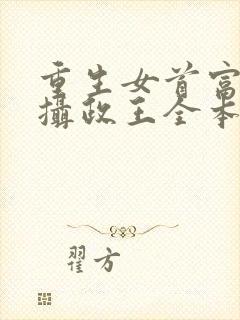 重生女首富
攝政王全本
翟方